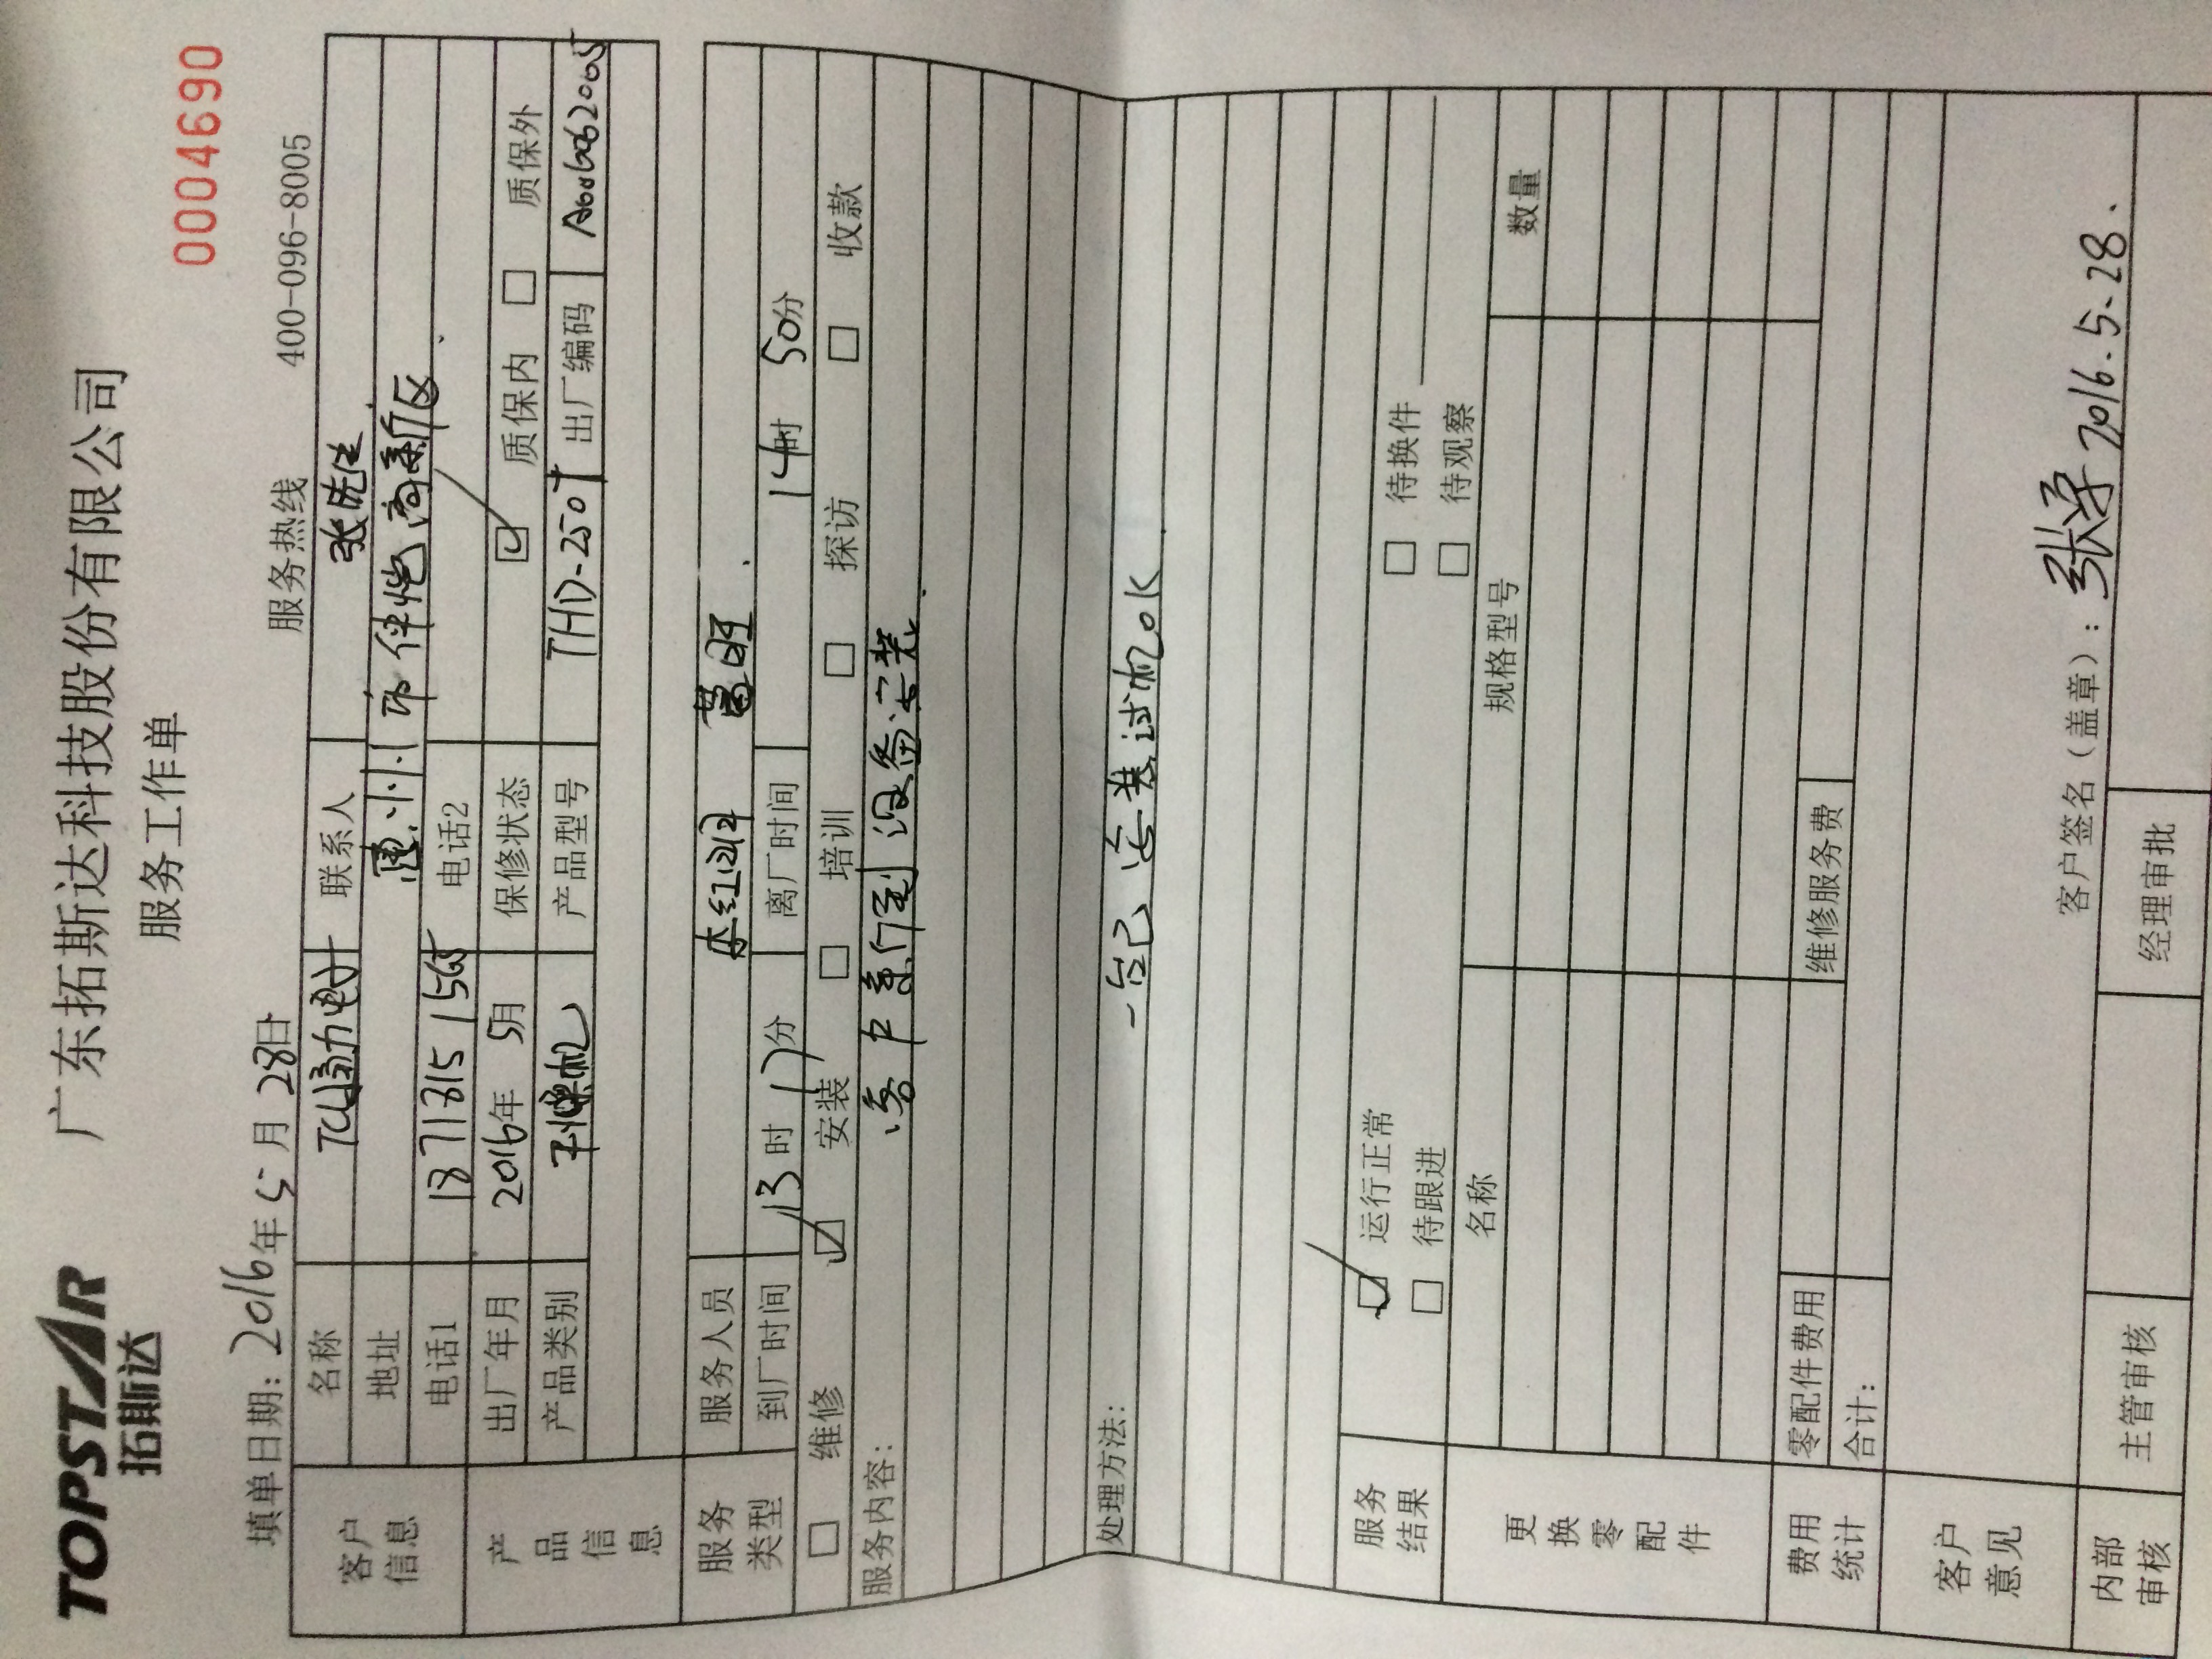 TOPSTAR 广东拓斯达科技股份有限公司
拓斯达 服务工作单 0004690
填单日期: 2016年 5月 28日 服务热线 400-096-8005
客户信息
名称 TCL 动力电 联系人 张先生
地址 惠州市仲恺高新区
电话1 电话2
产品信息
出厂年月 2016年 5月 保修状态 ☑ 质保内 □ 质保外
产品类别 干燥机 产品型号 THD-250T 出厂编码
服务类型
服务人员
到厂时间 13时 17分 离厂时间 14时 50分
□ 维修 ☑ 安装 □ 培训 □ 探访 □ 收款
服务内容: 客户新到设备安装
处理方法: 一台已安装试机OK
服务结果
☑ 运行正常 □ 待换件
□ 待跟进 □ 待观察
更换零配件
名称 规格型号 数量
费用统计
零配件费用 维修服务费
合计:
客户意见
客户签名（盖章）: 2016.5.28.
内部审核 主管审核 经理审批